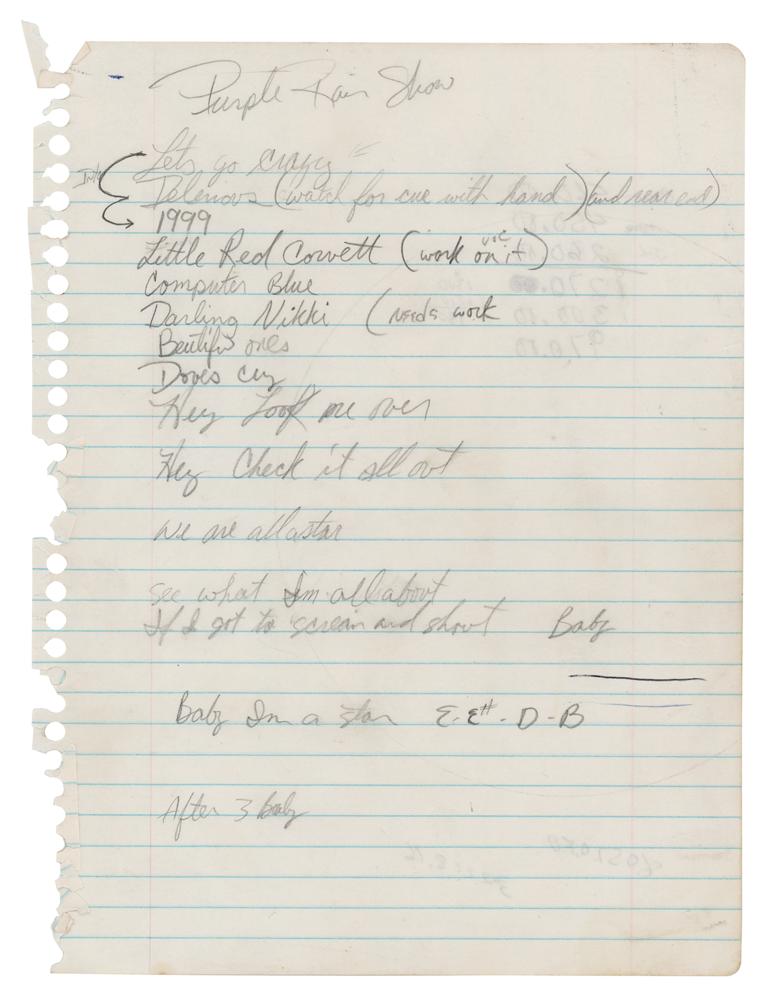 Purple Rain Show
Lets go crazy
Intro
Delerious (watch for cue with hand) (and rear end)
1999
Little Red Corvett (work on it)
voc
Computer Blue
Darling Nikki (needs work
Beutiful ones
Doves cry
Hey Look me over
Hey Check it all out
we are all a star
see what Im all about
If I got to scream and shout Baby
Baby Im a star E-E#-D-B
After 3 baby